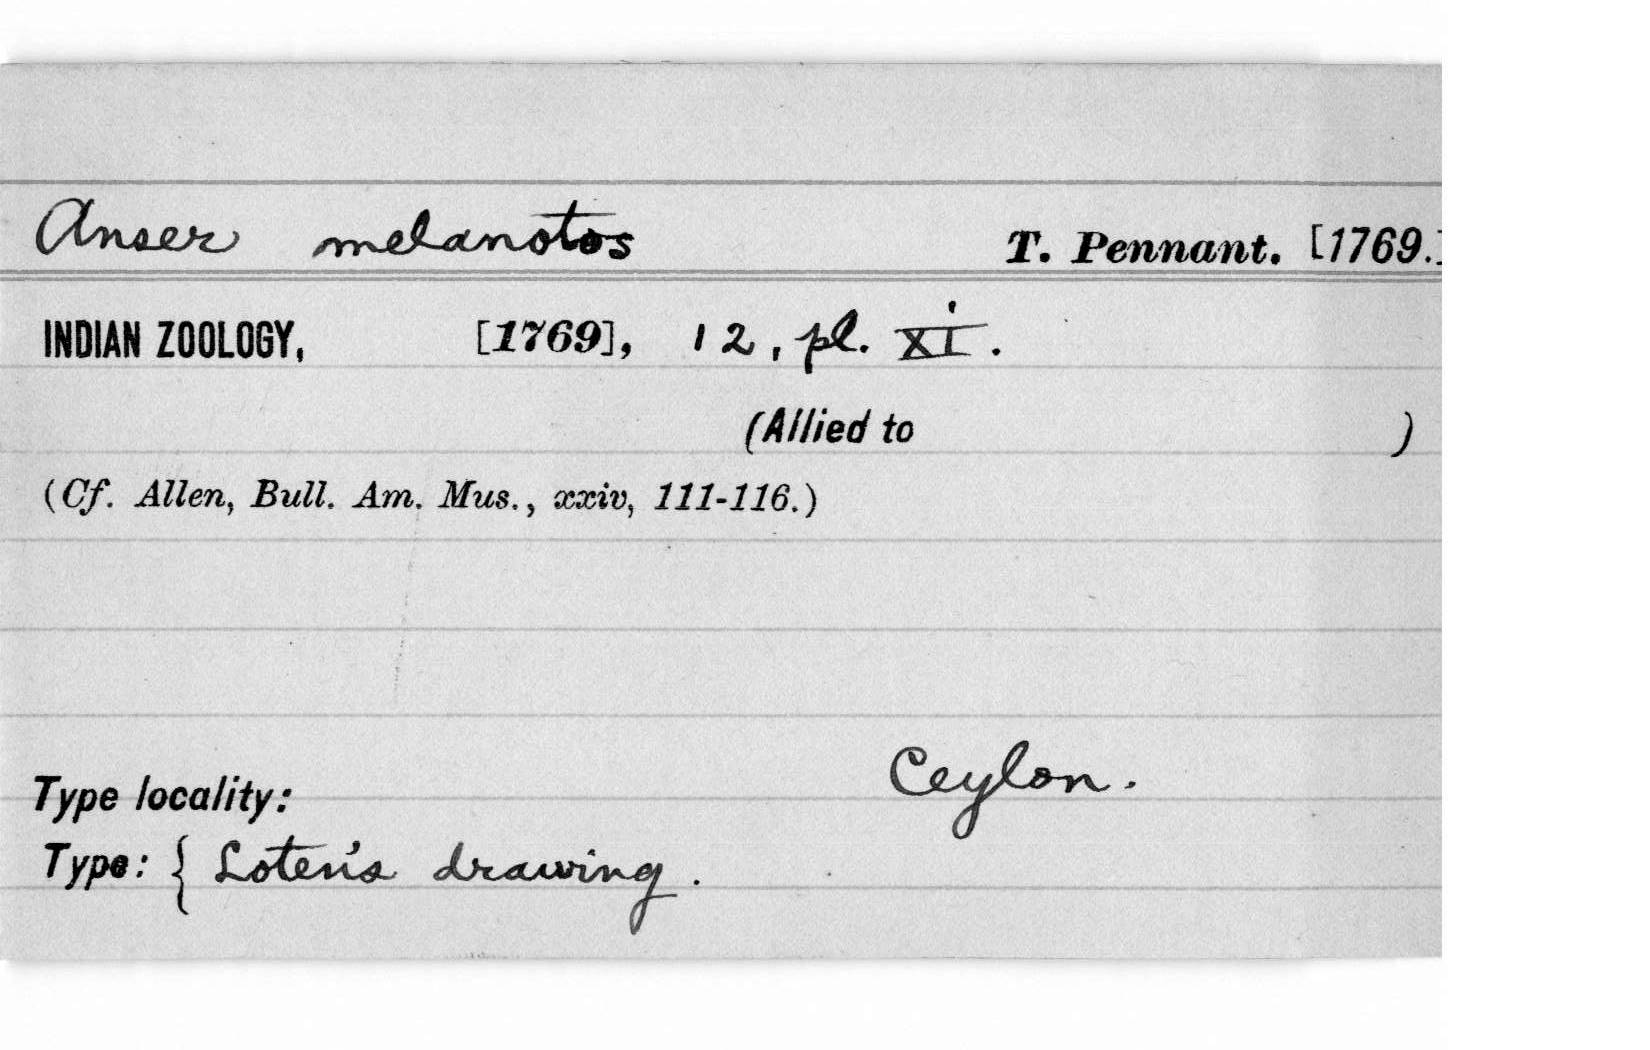 Anser melanotos T. Pennant. [1769.]
INDIAN ZOOLOGY, [1769], 12, pl. XI.
(Allied to )
(Cf. Allen, Bull. Am. Mus., xxiv, 111-116.)
Type locality: Ceylon.
Type: { Loten's drawing.